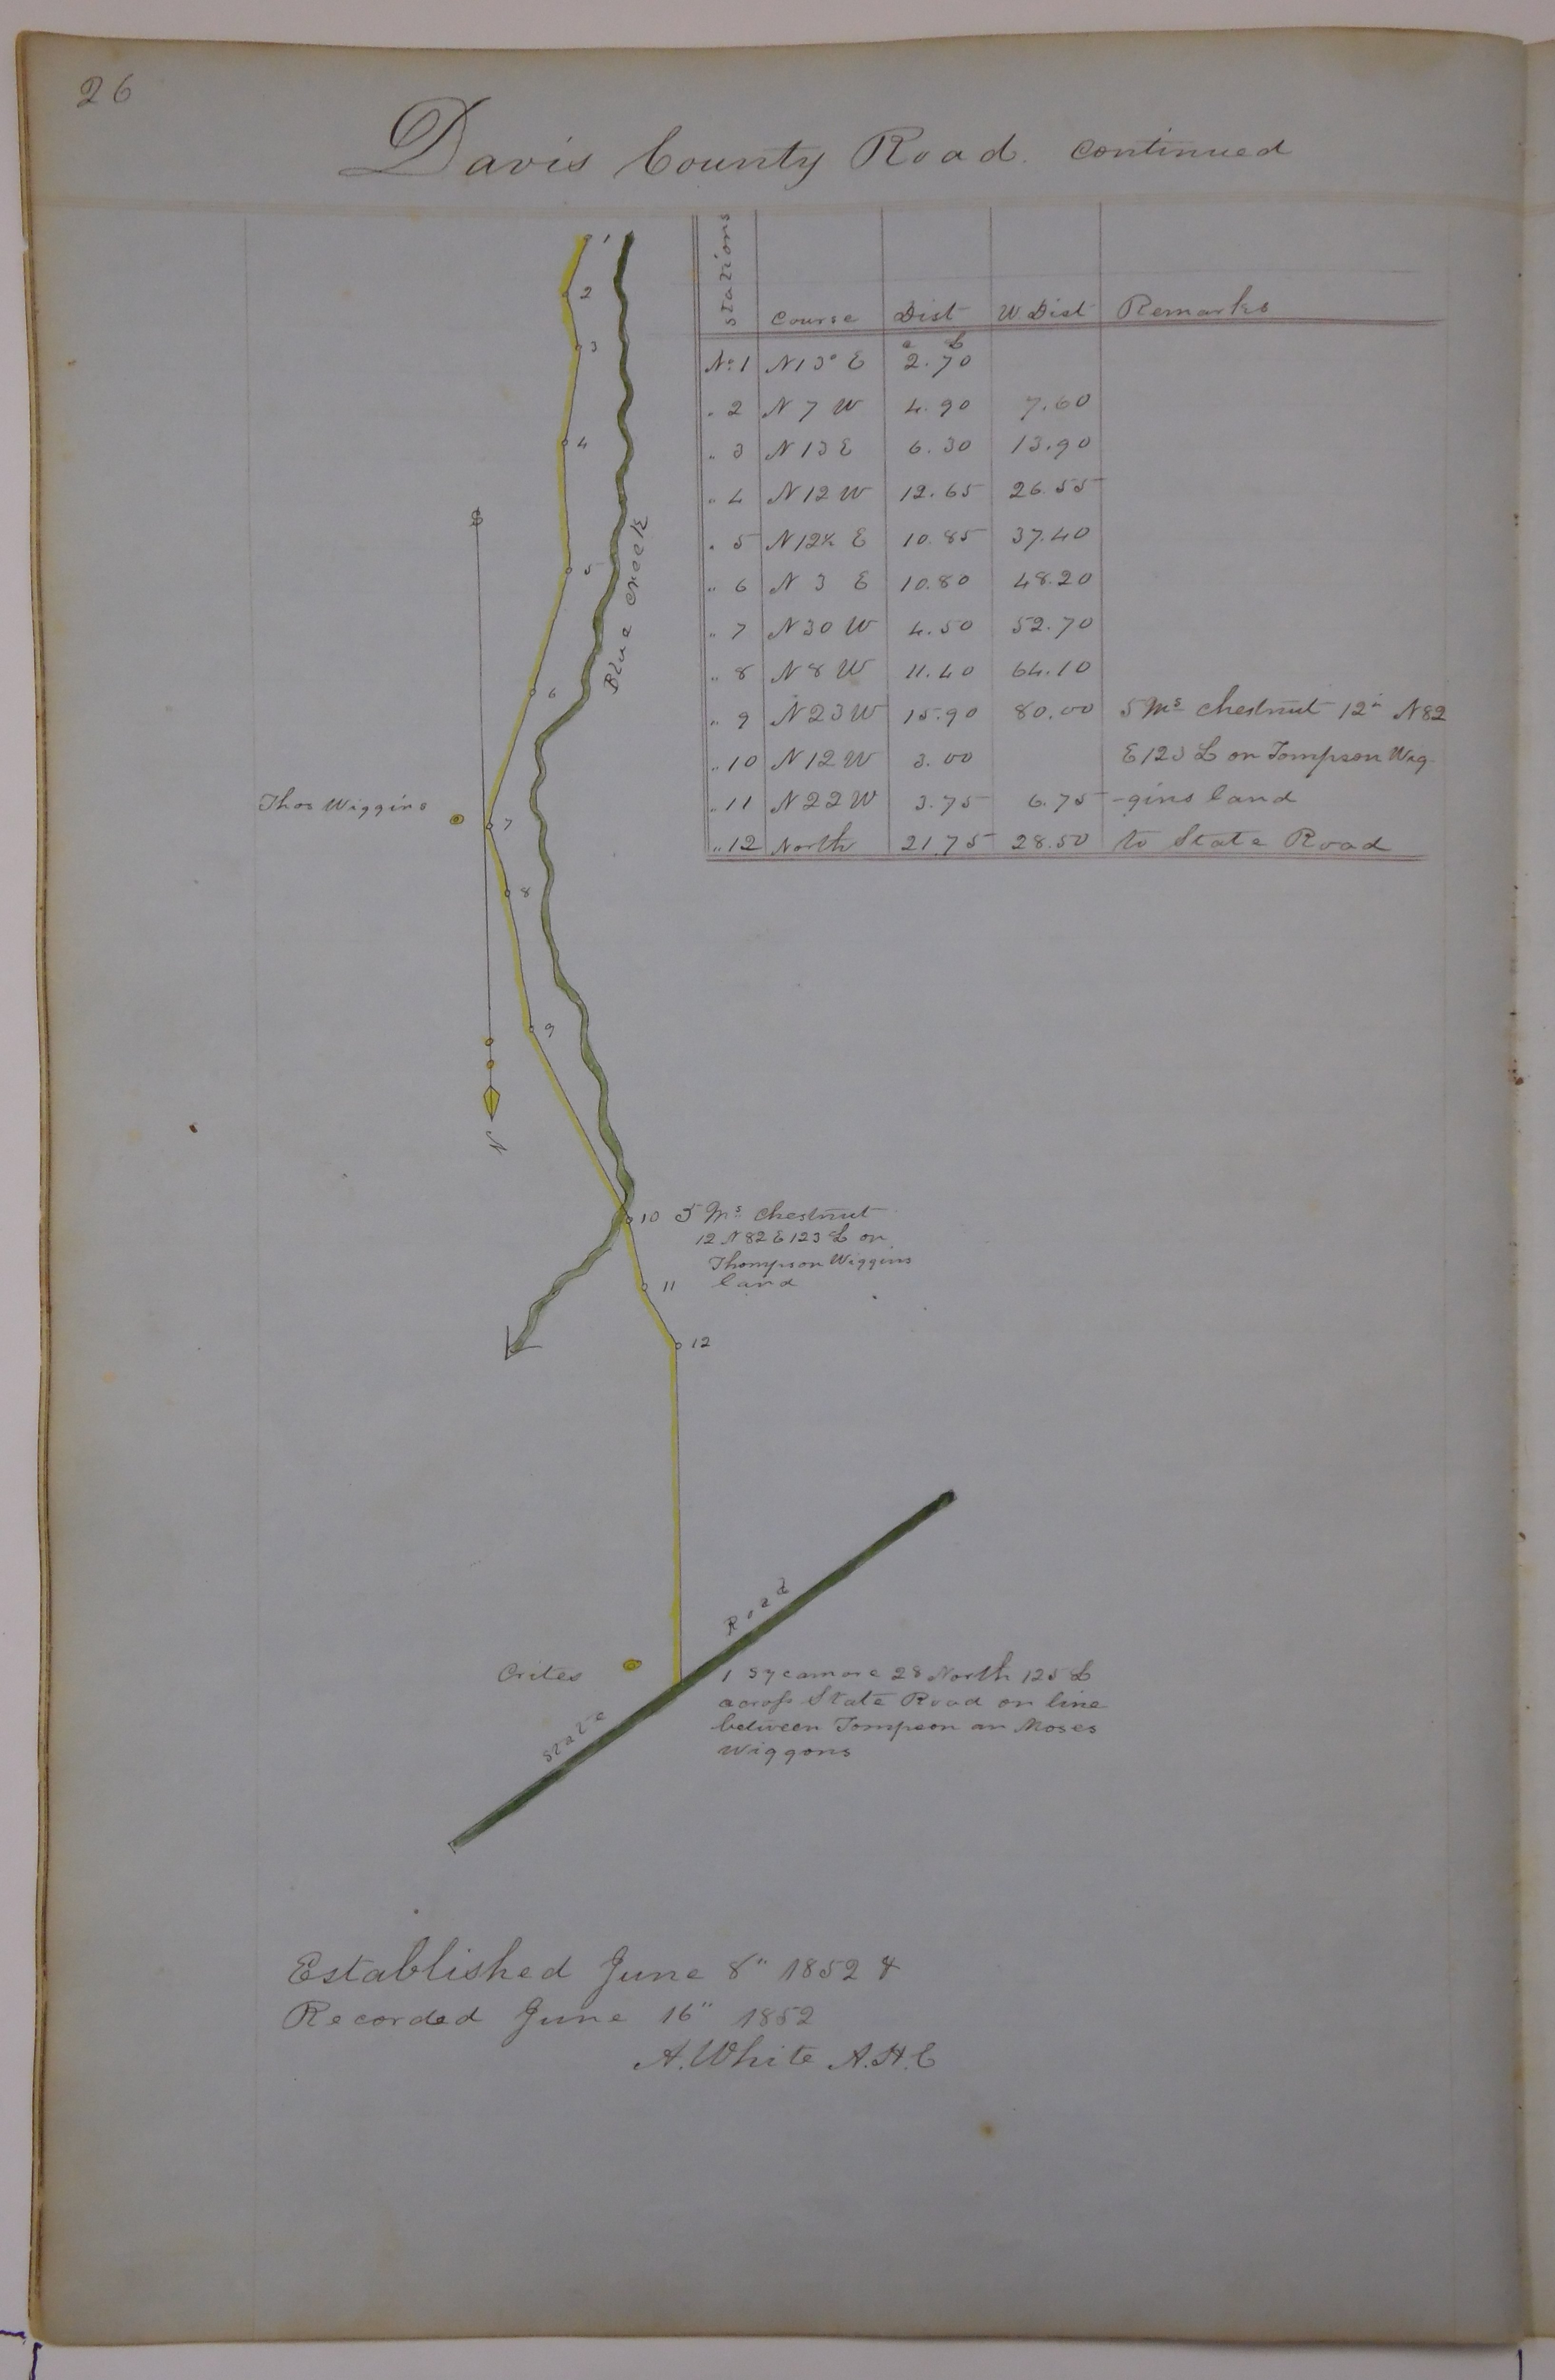 26
Davis County Road. continued
Stations Course Dist W Dist Remarks
c L
No 1 N 13° E 2.70
" 2 N 7 W 4.90 7.60
" 3 N 13 E 6.30 13.90
" 4 N 12 W 12.65 26.55
" 5 N 12½ E 10.85 37.40
" 6 N 3 E 10.80 48.20
" 7 N 30 W 4.50 52.70
" 8 N 8 W 11.40 64.10
" 9 N 23 W 15.90 80.00 5 Ms Chestnut 12" N82
" 10 N 12 W 3.00 E 123 L on Tompson Wig
" 11 N 22 W 3.75 6.75 -gins land
" 12 North 21.75 28.50 to State Road
1
2
3
4
S
5
Blue Creek
6
Thos Wiggins
7
8
9
N
10 5 Ms Chestnut
12 N 82 E 123 L on
Thompson Wiggins
11 land
12
State Road
Crites
1 Sycamore 28 North 125 L
across State Road on line
between Tompson an Moses
Wiggons
Established June 8" 1852 &
Recorded June 16" 1852
A. White A.H.C